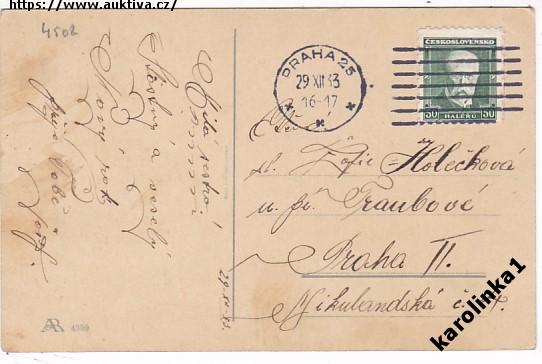 https://www.auktiva.cz/
4502
Milá sestro!
Šťastný a veselý
Nový rok
přeje Tobě
29.XII.33
PRAHA 25
29 XII 33
16-17
ČESKOSLOVENSKO
50 HALÉŘŮ 50
sl. Žofie Holečková
u pí. Traubové
Praha II.
Mikulandská č.
AR
karolinka1